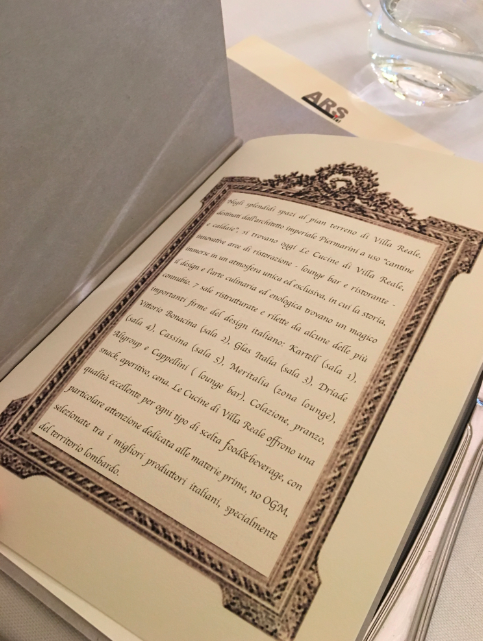 ARS
Negli splendidi spazi al pian terreno di Villa Reale,
destinati dall'architetto imperiale Piermarini a uso "cantine
e caldare", si trovano oggi Le Cucine di Villa Reale,
innovative aree di ristorazione - lounge bar e ristorante -
immerse in un atmosfera unica ed esclusiva, in cui la storia,
il design e l'arte culinaria ed enologica trovano un magico
connubio. 7 sale ristrutturate e rilette da alcune delle più
importanti firme del design italiano: Kartell (sala 1),
Vittorio Bonacina (sala 2), Glas Italia (sala 3), Driade
(sala 4), Cassina (sala 5), Meritalia (zona lounge),
Aligroup e Cappellini ( lounge bar). Colazione, pranzo,
snack, aperitivo, cena. Le Cucine di Villa Reale offrono una
qualità eccellente per ogni tipo di scelta food&beverage, con
particolare attenzione dedicata alle materie prime, no OGM,
selezionate tra i migliori produttori italiani, specialmente
del territorio lombardo.